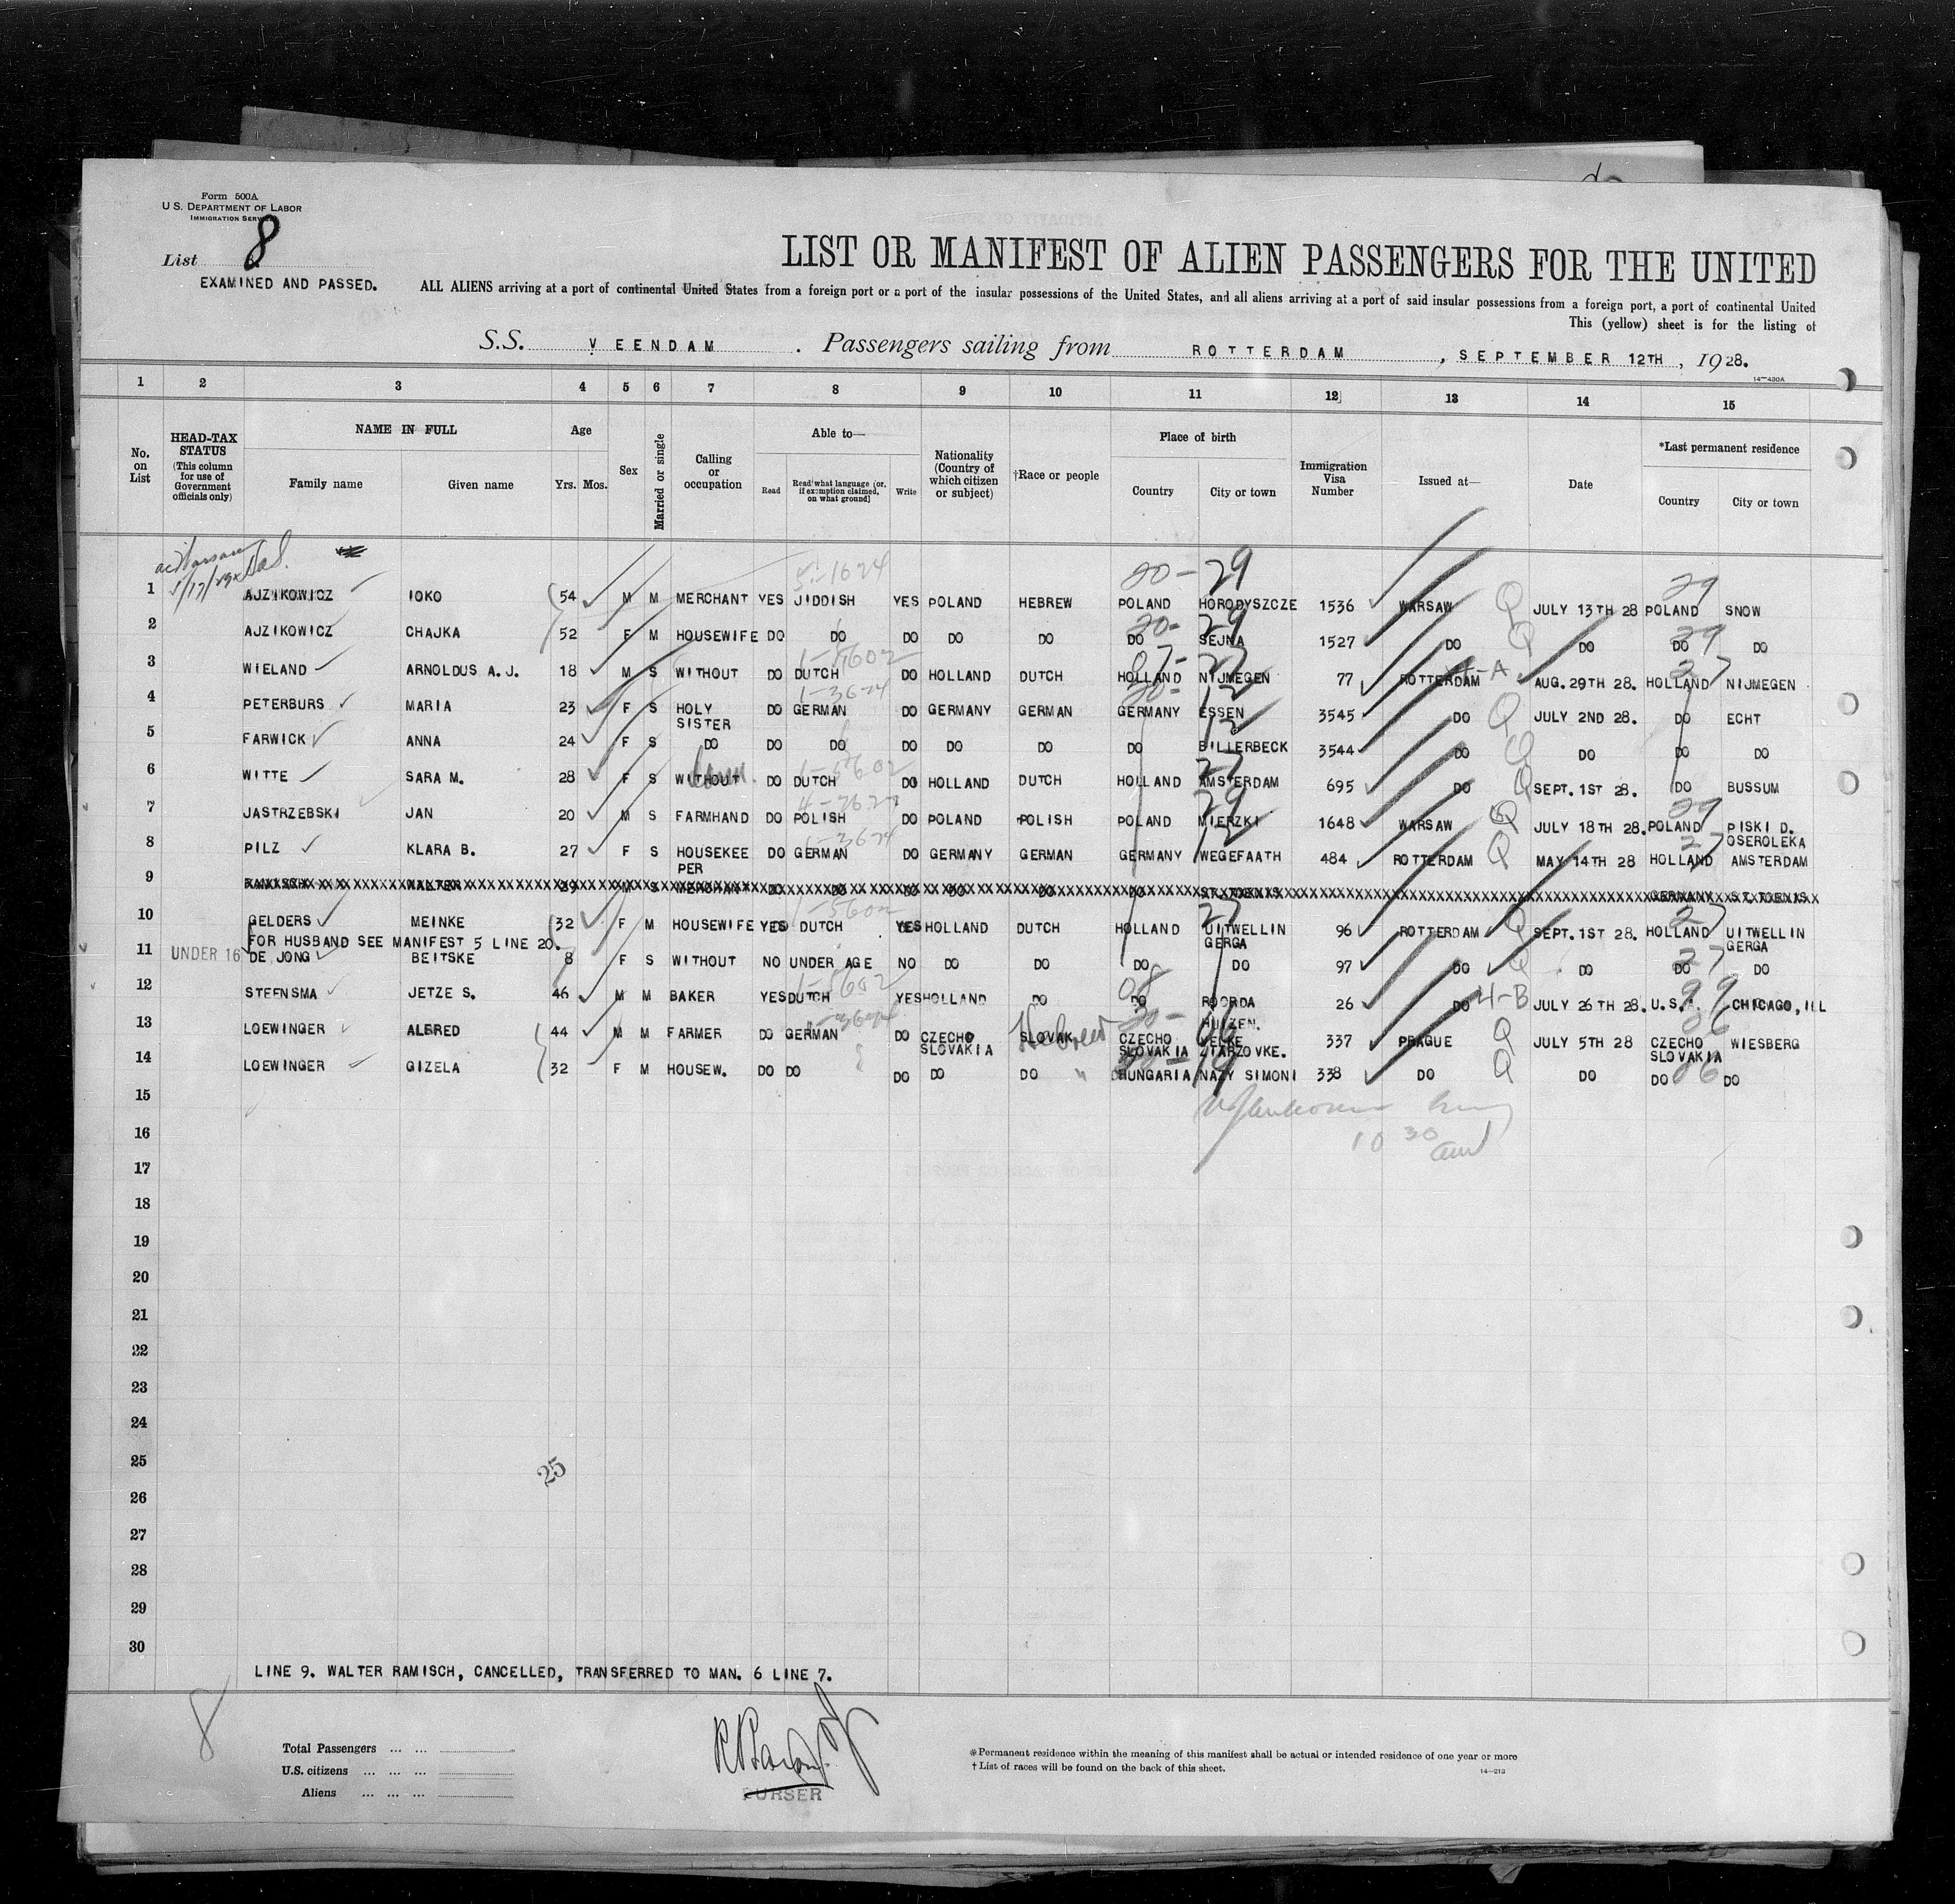 Form 500A
U.S. DEPARTMENT OF LABOR
IMMIGRATION SERVICE
List 8
EXAMINED AND PASSED.
LIST OR MANIFEST OF ALIEN PASSENGERS FOR THE UNITED
ALL ALIENS arriving at a port of continental United States from a foreign port or a port of the insular possessions of the United States, and all aliens arriving at a port of said insular possessions from a foreign port, a port of continental United
This (yellow) sheet is for the listing of
S.S. VEENDAM. Passengers sailing from ROTTERDAM, SEPTEMBER 12TH, 1928.
14-430A
1 2 3 4 5 6 7 8 9 10 11 12 13 14 15
No. on List HEAD-TAX STATUS (This column for use of Government officials only) NAME IN FULL Family name Given name Age Yrs. Mos. Sex Married or single Calling or occupation Able to— Read Read what language (or, if exemption claimed, on what ground) Write Nationality (Country of which citizen or subject) †Race or people Place of birth Country City or town Immigration Visa Number Issued at— Date *Last permanent residence Country City or town
20-29 29
1 AJZIKOWICZ IOKO 54 M M MERCHANT YES JIDDISH YES POLAND HEBREW POLAND HORODYSZCZE 1536 WARSAW Q JULY 13TH 28 POLAND SNOW
2 AJZIKOWICZ CHAJKA 52 F M HOUSEWIFE DO DO DO DO DO DO SEJNA 1527 DO Q DO DO DO
3 WIELAND ARNOLDUS A.J. 18 M S WITHOUT DO DUTCH DO HOLLAND DUTCH HOLLAND NIJMEGEN 77 ROTTERDAM 4-A AUG. 29TH 28. HOLLAND NIJMEGEN
4 PETERBURS MARIA 23 F S HOLY SISTER DO GERMAN DO GERMANY GERMAN GERMANY ESSEN 3545 DO Q JULY 2ND 28. DO ECHT
5 FARWICK ANNA 24 F S DO DO DO DO DO DO DO BILLERBECK 3544 DO Q DO DO DO
6 WITTE SARA M. 28 F S WITHOUT DO DUTCH DO HOLLAND DUTCH HOLLAND AMSTERDAM 695 DO Q SEPT. 1ST 28. DO BUSSUM
7 JASTRZEBSKI JAN 20 M S FARMHAND DO POLISH DO POLAND POLISH POLAND MIERZKI 1648 WARSAW Q JULY 18TH 28. POLAND PISKI D. OSEROLEKA
8 PILZ KLARA B. 27 F S HOUSEKEE PER DO GERMAN DO GERMANY GERMAN GERMANY WEGEFAATH 484 ROTTERDAM Q MAY 14TH 28 HOLLAND AMSTERDAM
9 RAMISCH WALTER 29 M S MERCHANT DO DO DO DO DO DO ST. TOENIS GERMANY ST. TOENIS
10 GELDERS MEINKE 32 F M HOUSEWIFE YES DUTCH YES HOLLAND DUTCH HOLLAND UITWELLIN GERGA 96 ROTTERDAM Q SEPT. 1ST 28. HOLLAND UITWELLIN GERGA
FOR HUSBAND SEE MANIFEST 5 LINE 20.
11 UNDER 16 DE JONG BEITSKE 8 F S WITHOUT NO UNDER AGE NO DO DO DO DO 97 DO Q DO DO DO
12 STEENSMA JETZE S. 46 M M BAKER YES DUTCH YES HOLLAND DO DO ROORDA HUIZEN. 26 DO 4-B JULY 26TH 28. U.S.A. CHICAGO, ILL
13 LOEWINGER ALBRED 44 M M FARMER DO GERMAN DO CZECHO SLOVAKIA SLOVAK Hebrew CZECHO SLOVAKIA VELKE ZTARZOVKE. 337 PRAGUE Q JULY 5TH 28 CZECHO SLOVAKIA WIESBERG
14 LOEWINGER GIZELA 32 F M HOUSEW. DO DO DO DO DO " HUNGARIA NAZY SIMONI 338 DO Q DO DO DO
15
16 10 30
17
18
19
20
21
22
23
24
25 25
26
27
28
29
30
LINE 9. WALTER RAMISCH, CANCELLED, TRANSFERRED TO MAN. 6 LINE 7.
8
Total Passengers
U.S. citizens
Aliens
PURSER
*Permanent residence within the meaning of this manifest shall be actual or intended residence of one year or more
†List of races will be found on the back of this sheet.
14-213